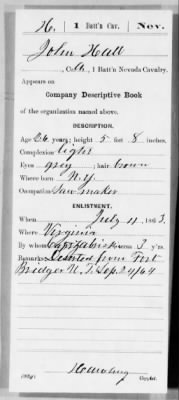 H. | 1 Batt'n Cav. | Nev.
John Hall
, Co. A, 1 Batt'n Nevada Cavalry.
Appears on
Company Descriptive Book
of the organization named above.
DESCRIPTION.
Age 26 years; height 5 feet 8 inches.
Complexion light
Eyes grey; hair brown
Where born N.Y.
Occupation Saw maker
ENLISTMENT.
When July 11, 1863.
Where Virginia
By whom term 3 y'rs.
Remarks: Deserted from Fort
Bridger U.T. Sep. 24/64
Copyist.